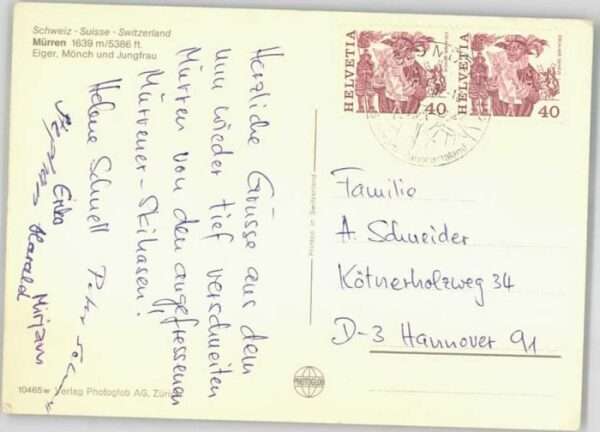 Schweiz · Suisse · Switzerland
Mürren 1639 m/5386 ft.
Eiger, Mönch und Jungfrau
Herzliche Grüsse aus dem
nun wieder tief verschneiten
Mürren von den angefressenen
Mürrener-Skihasen!
Helene Schnell Peter
Erika
Harald Mirjam
HELVETIA
40
HELVETIA
40
Familie
A. Schneider
Kötnerholzweg 34
D-3 Hannover 91
Printed in Switzerland
PHOTOGLOB
10465w Verlag Photoglob AG, Zür